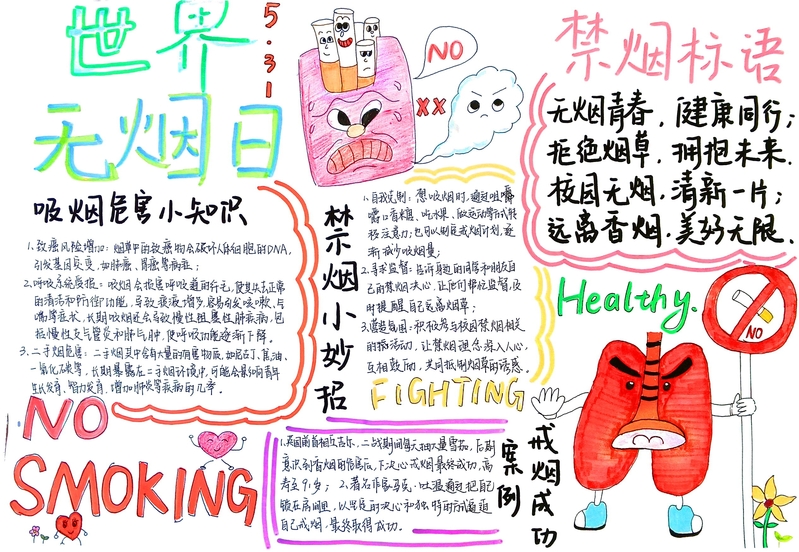 世界
无烟日
5.31
NO
XX
禁烟标语
无烟青春，健康同行；
拒绝烟草，拥抱未来.
校园无烟，清新一片；
远离香烟，美好无限.
吸烟危害小知识
1.致癌风险增加：烟草中的致癌物会破坏人体细胞的DNA,
引发基因突变，如肺癌、胃癌等病症；
2.呼吸系统疾病：吸烟会损害呼吸道的纤毛，使其失去正常
的清洁和防御功能，导致痰液增多，容易引发咳嗽、气
喘等症状，长期吸烟还会导致慢性阻塞性肺疾病，包
括慢性支气管炎和肺气肿，使呼吸功能逐渐下降.
3.二手烟危害：二手烟其中含有大量的有害物质，如尼古丁、焦油、
一氧化碳等，长期暴露在二手烟环境中，可能会影响青年
生长发育、智力发育，增加肺炎等疾病的几率.
NO
SMOKING
禁烟小妙招
1.自我克制：想吸烟时，通过咀嚼
口香糖、吃水果、做运动等方式转
移注意力；也可以制定戒烟计划，逐
渐减少吸烟量；
2.寻求监督：告诉身边的同学和朋友自
己的禁烟决心，让他们帮忙监督，及
时提醒自己远离烟草；
3.营造氛围：积极参与校园禁烟相关
的活动，让禁烟理念深入人心，
互相鼓励，共同抵制烟草的诱惑.
FIGHTING
Healthy.
NO
戒烟成功
案例
1.英国前首相丘吉尔，二战期间每天抽大量雪茄，后期
意识到吸烟的危害后，下决心戒烟最终成功，高
寿至91岁；2.著名作家马克·吐温通过把自己
锁在房间里，以坚定的决心和独特的方式逼迫
自己戒烟，最终取得成功.